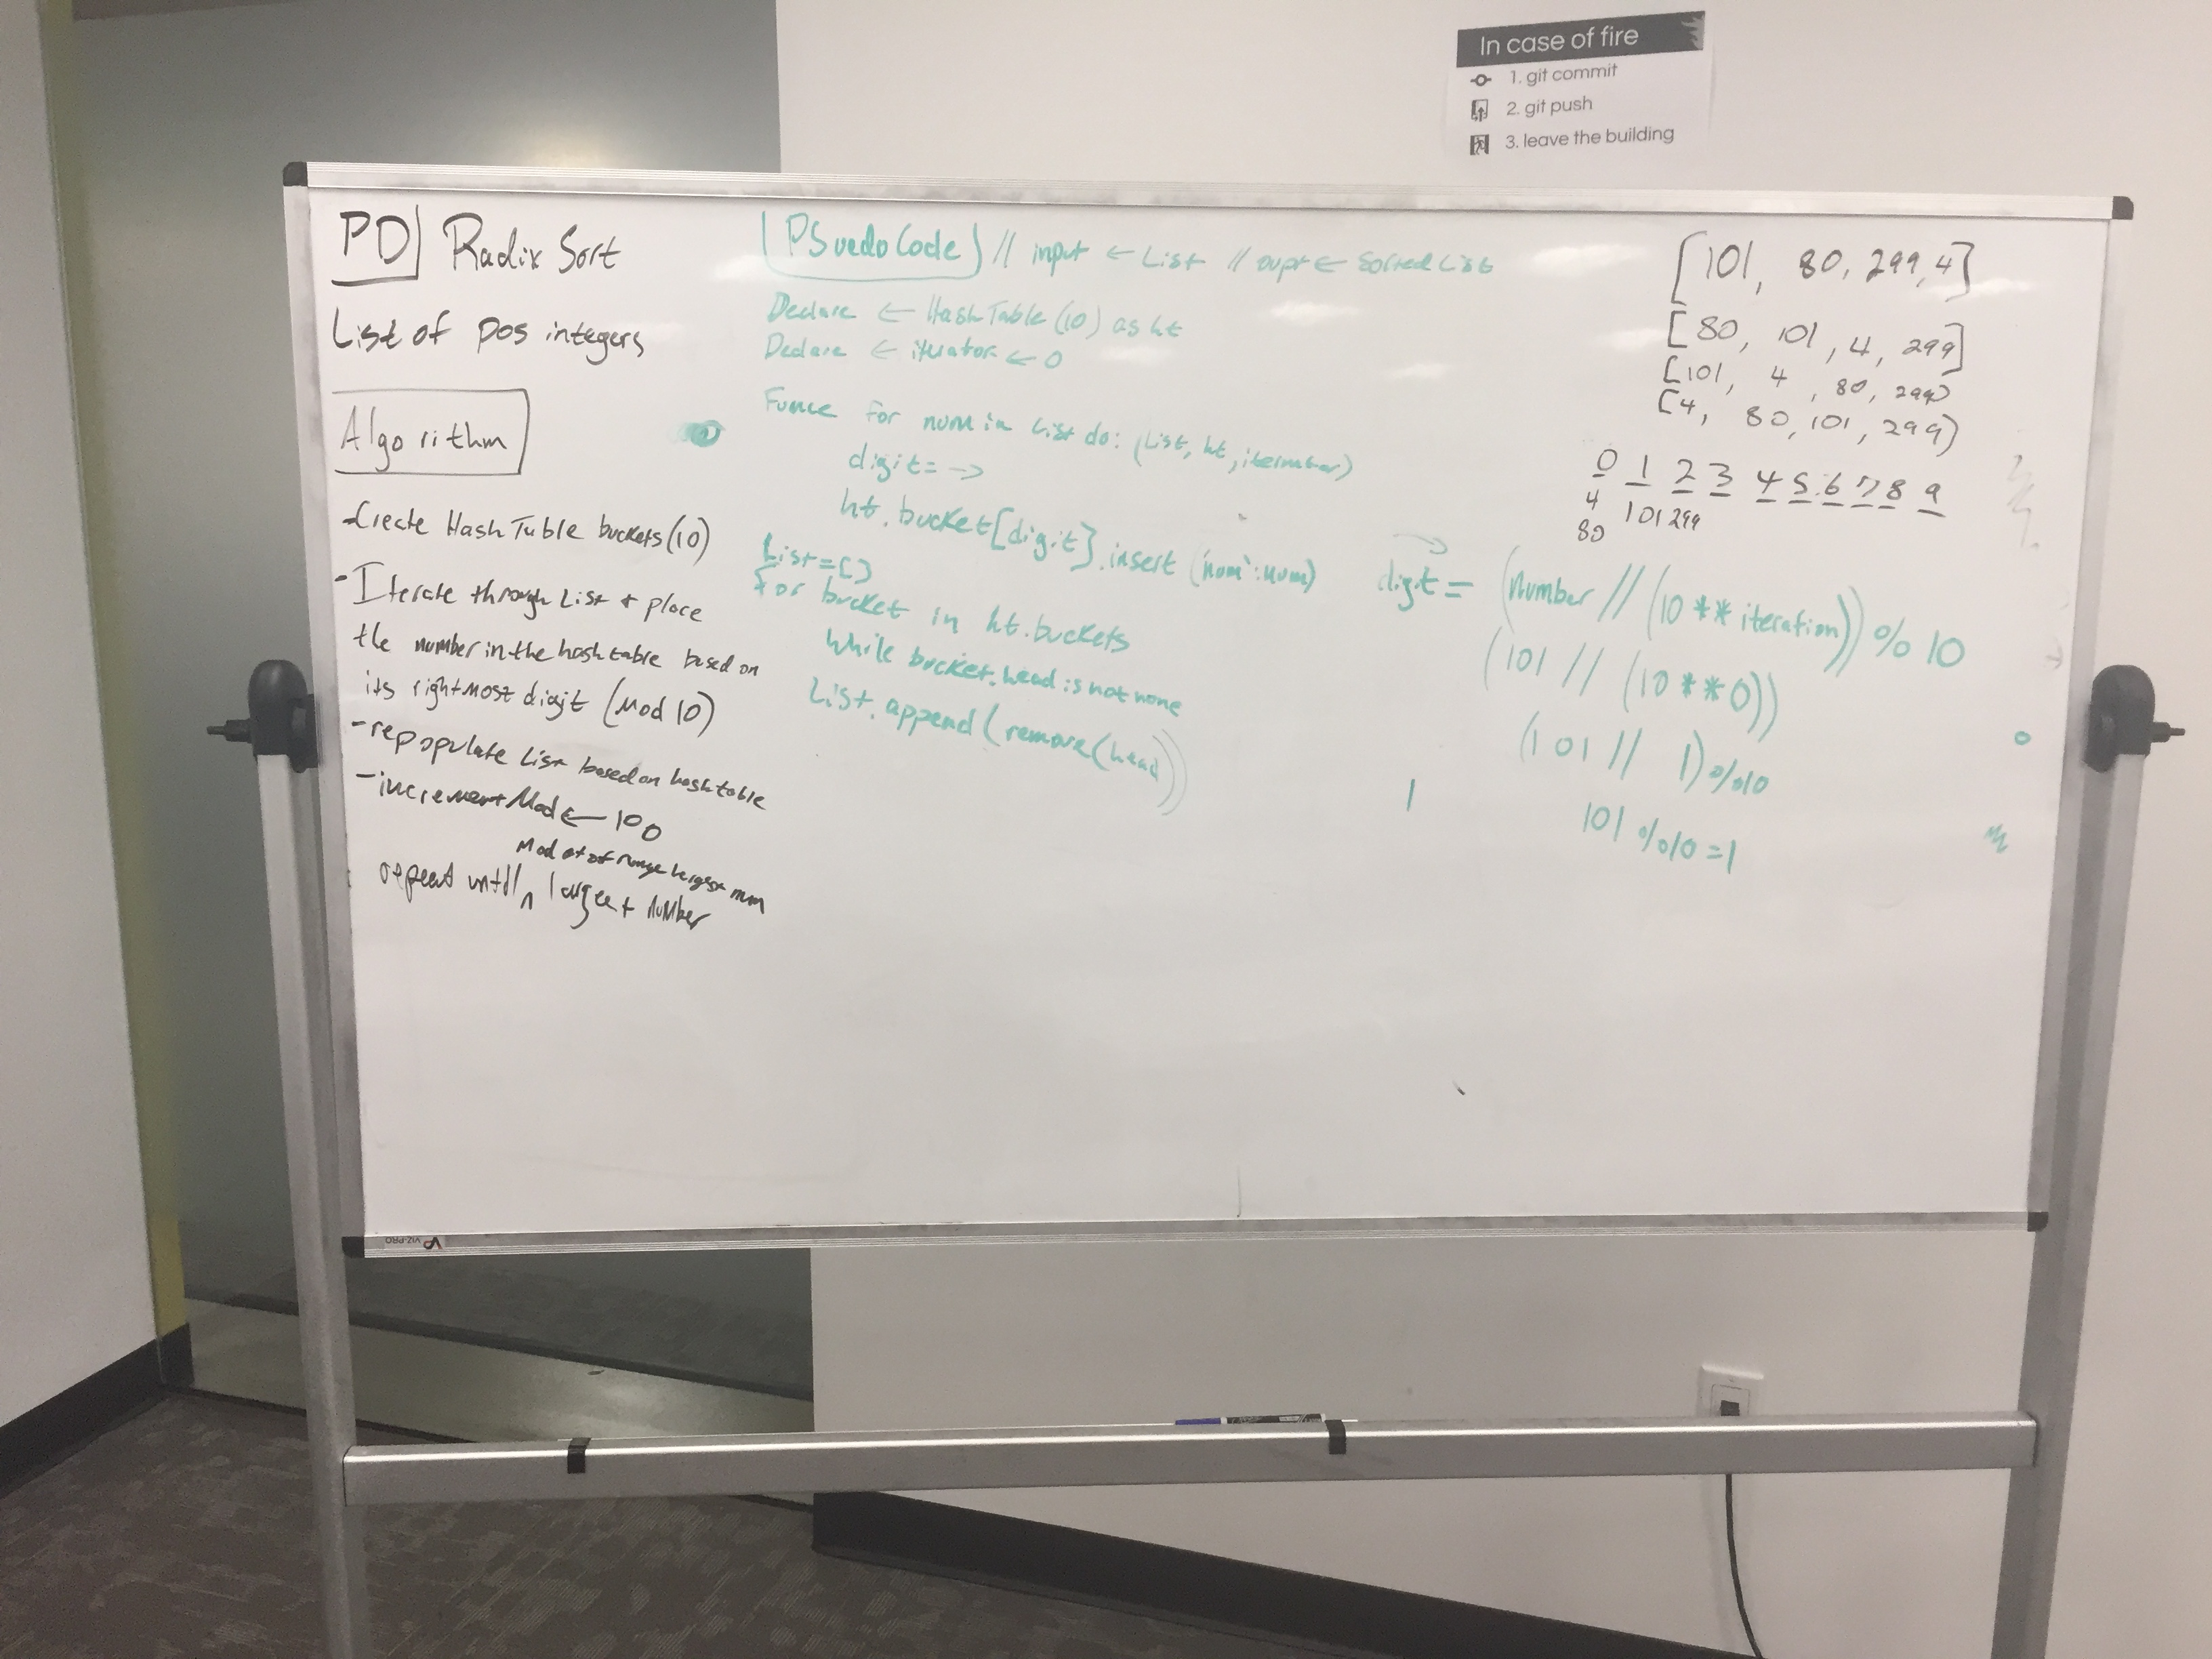 In case of fire
1. git commit
2. git push
3. leave the building
PD Radix Sort
List of pos integers
Algorithm
- Create Hash Table buckets (10)
- Iterate through List + place
the number in the hash table based on
its rightmost digit (Mod 10)
- repopulate List based on hashtable
- increment Mod ← 100
Mod out of range largest num
repeat until ^ largest number
PSuedo Code // input ← List // ← Sorted List
Declare ← Hash Table (10) as ht
Declare ← iterator ← 0
for num in List do: (List, ht, )
digit = →
ht.bucket[digit].insert ('num':num)
List = []
for bucket in ht.buckets
while bucket.head is not none
List.append(remove(head))
[101, 80, 299, 4]
[80, 101, 4, 299]
[101, 4, 80, 299]
[4, 80, 101, 299)
0 1 2 3 4 5 6 7 8 9
4 101 299
80
digit = (Number // (10 ** iteration)) % 10
(101 // (10 ** 0))
(101 // 1) % 10
1
101 % 10 = 1
VIZ-PRO